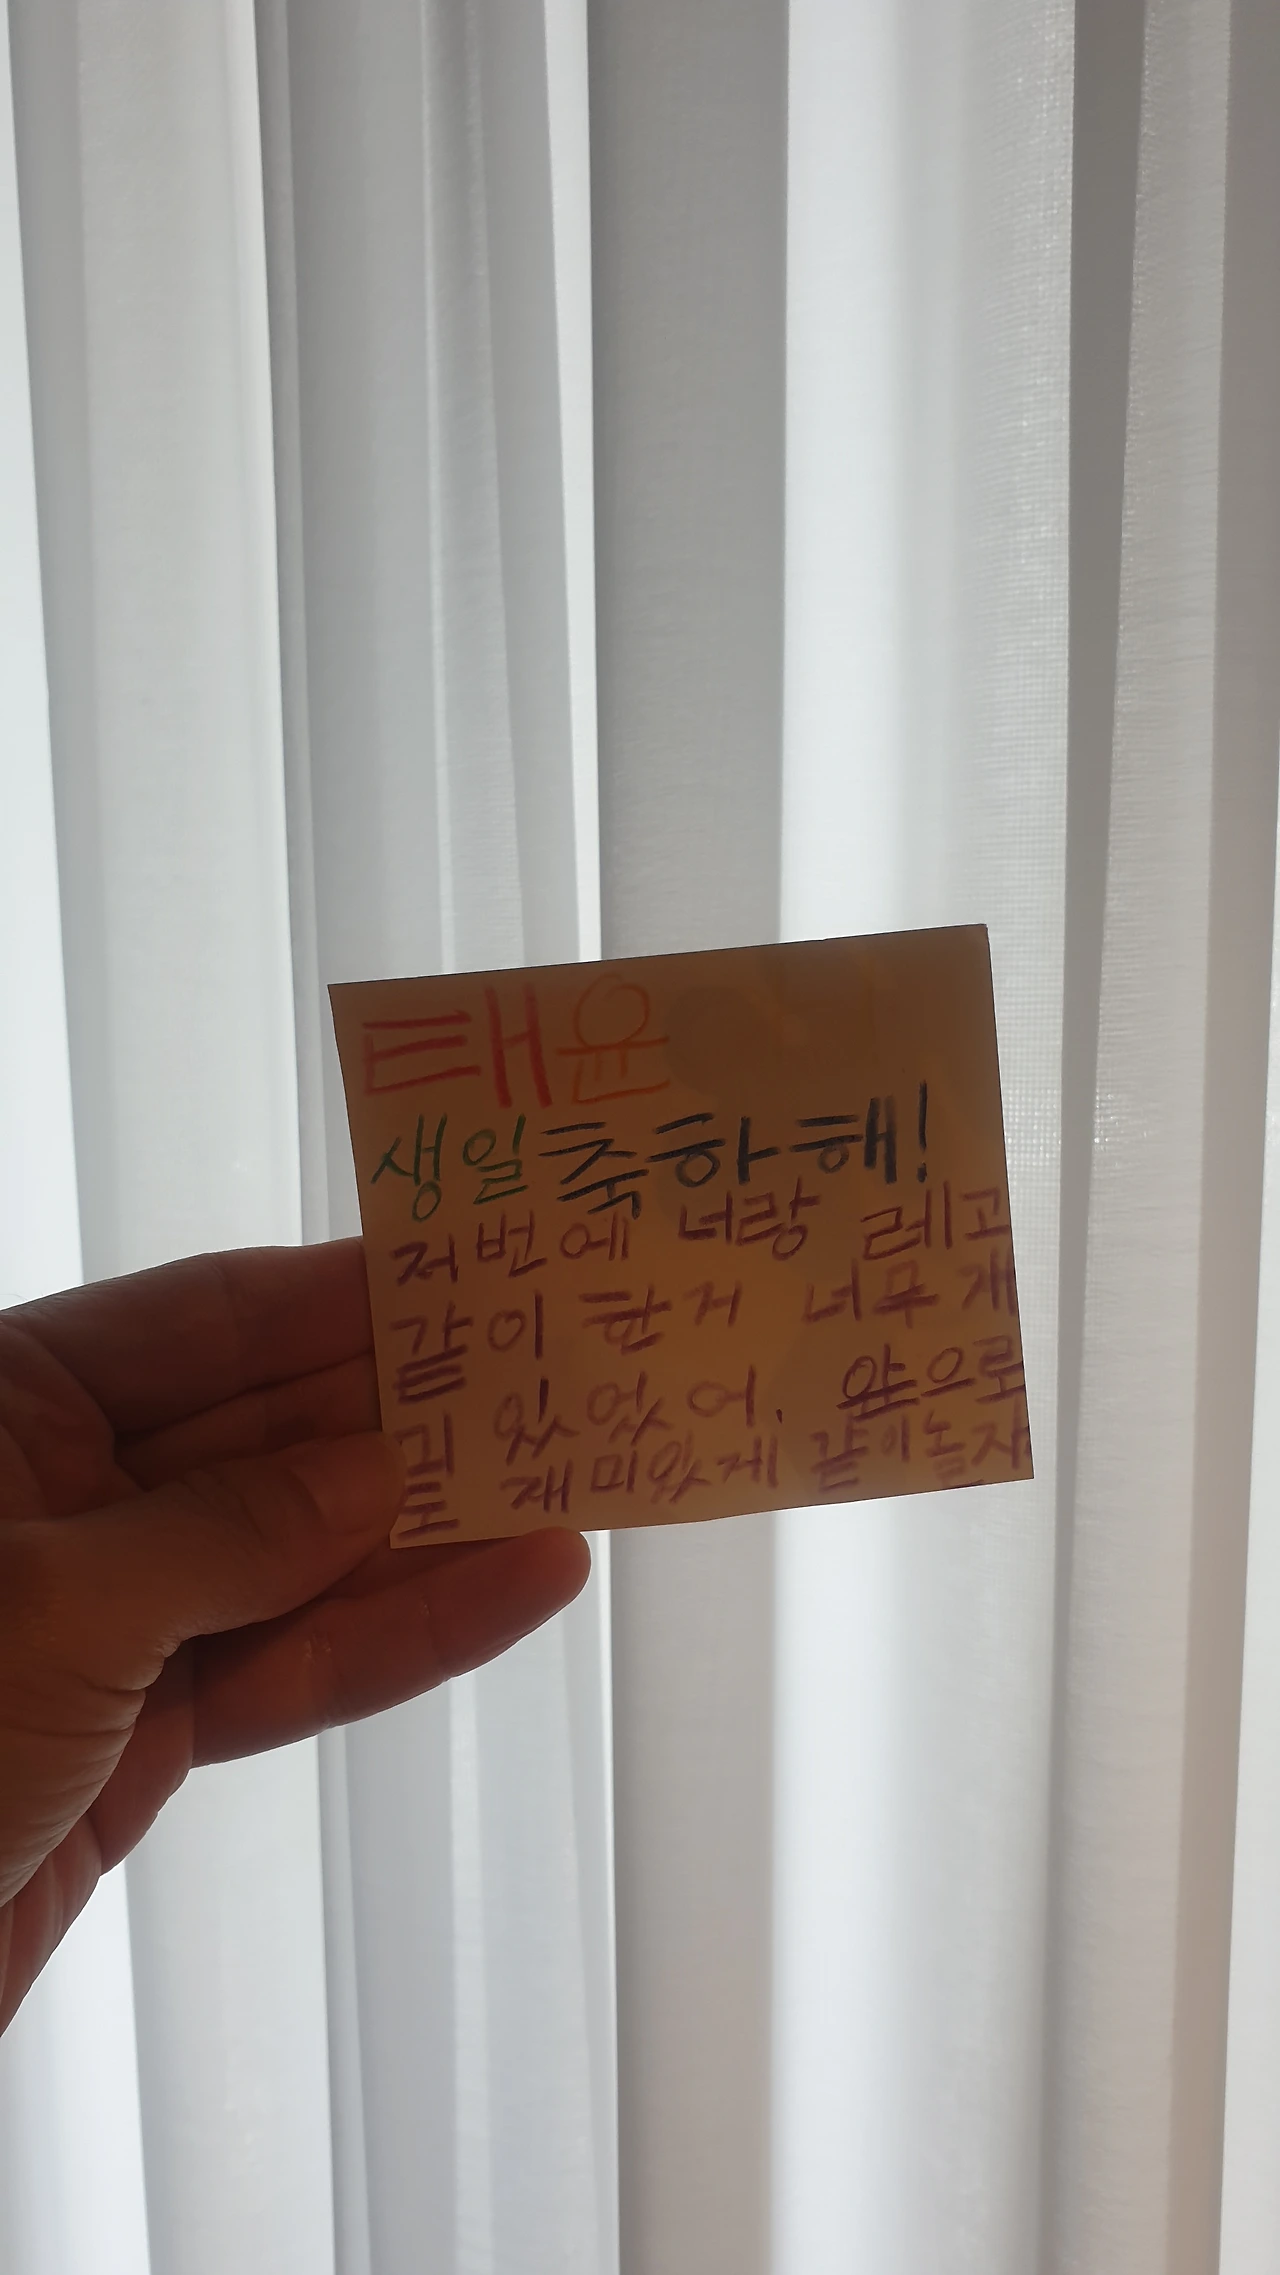 태윤
생일축하해!
저번에 너랑 레고
같이 한거 너무 재
미 있었어. 앞으로
도 재미있게 같이놀자